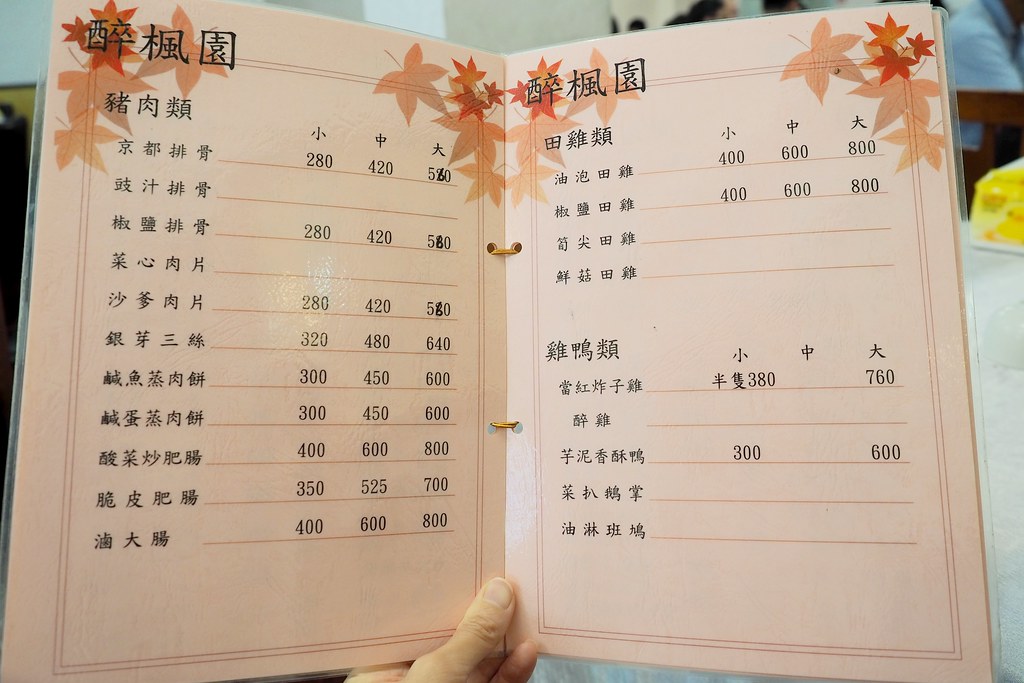 醉楓園
豬肉類
小 中 大
京都排骨 280 420
豉汁排骨
椒鹽排骨 280 420
菜心肉片
沙爹肉片 280 420
銀芽三絲 320 480 640
鹹魚蒸肉餅 300 450 600
鹹蛋蒸肉餅 300 450 600
酸菜炒肥腸 400 600 800
脆皮肥腸 350 525 700
滷大腸 400 600 800
醉楓園
田雞類
小 中 大
油泡田雞 400 600 800
椒鹽田雞 400 600 800
筍尖田雞
鮮菇田雞
雞鴨類
小 中 大
當紅炸子雞 半隻380 760
醉雞
芋泥香酥鴨 300 600
菜扒鵝掌
油淋班鳩